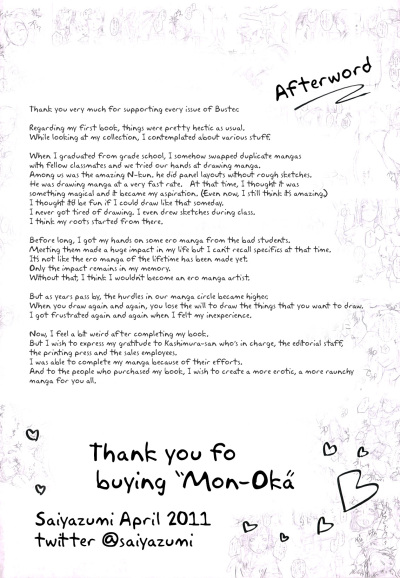 Afterword
Thank you very much for supporting every issue of Buster.
Regarding my first book, things were pretty hectic as usual.
While looking at my collection, I contemplated about various stuff.
When I graduated from grade school, I somehow swapped duplicate mangas
with fellow classmates and we tried our hands at drawing manga.
Among us was the amazing N-kun, he did panel layouts without rough sketches.
He was drawing manga at a very fast rate. At that time, I thought it was
something magical and it became my aspiration. (Even now, I still think it's amazing.)
I thought it'd be fun if I could draw like that someday.
I never got tired of drawing. I even drew sketches during class.
I think my roots started from there.
Before long, I got my hands on some ero manga from the bad students.
Meeting them made a huge impact in my life but I can't recall specifics at that time.
It's not like the ero manga of the lifetime has been made yet.
Only the impact remains in my memory.
Without that, I think I wouldn't become an ero manga artist.
But as years pass by, the hurdles in our manga circle became higher.
When you draw again and again, you lose the will to draw the things that you want to draw.
I got frustrated again and again when I felt my inexperience.
Now, I feel a bit weird after completing my book.
But I wish to express my gratitude to Kashimura-san who's in charge, the editorial staff,
the printing press and the sales employees.
I was able to complete my manga because of their efforts.
And to the people who purchased my book, I wish to create a more erotic, a more raunchy
manga for you all.
Thank you fo
buying "Mon-Oka"
Saiyazumi April 2011
twitter @saiyazumi